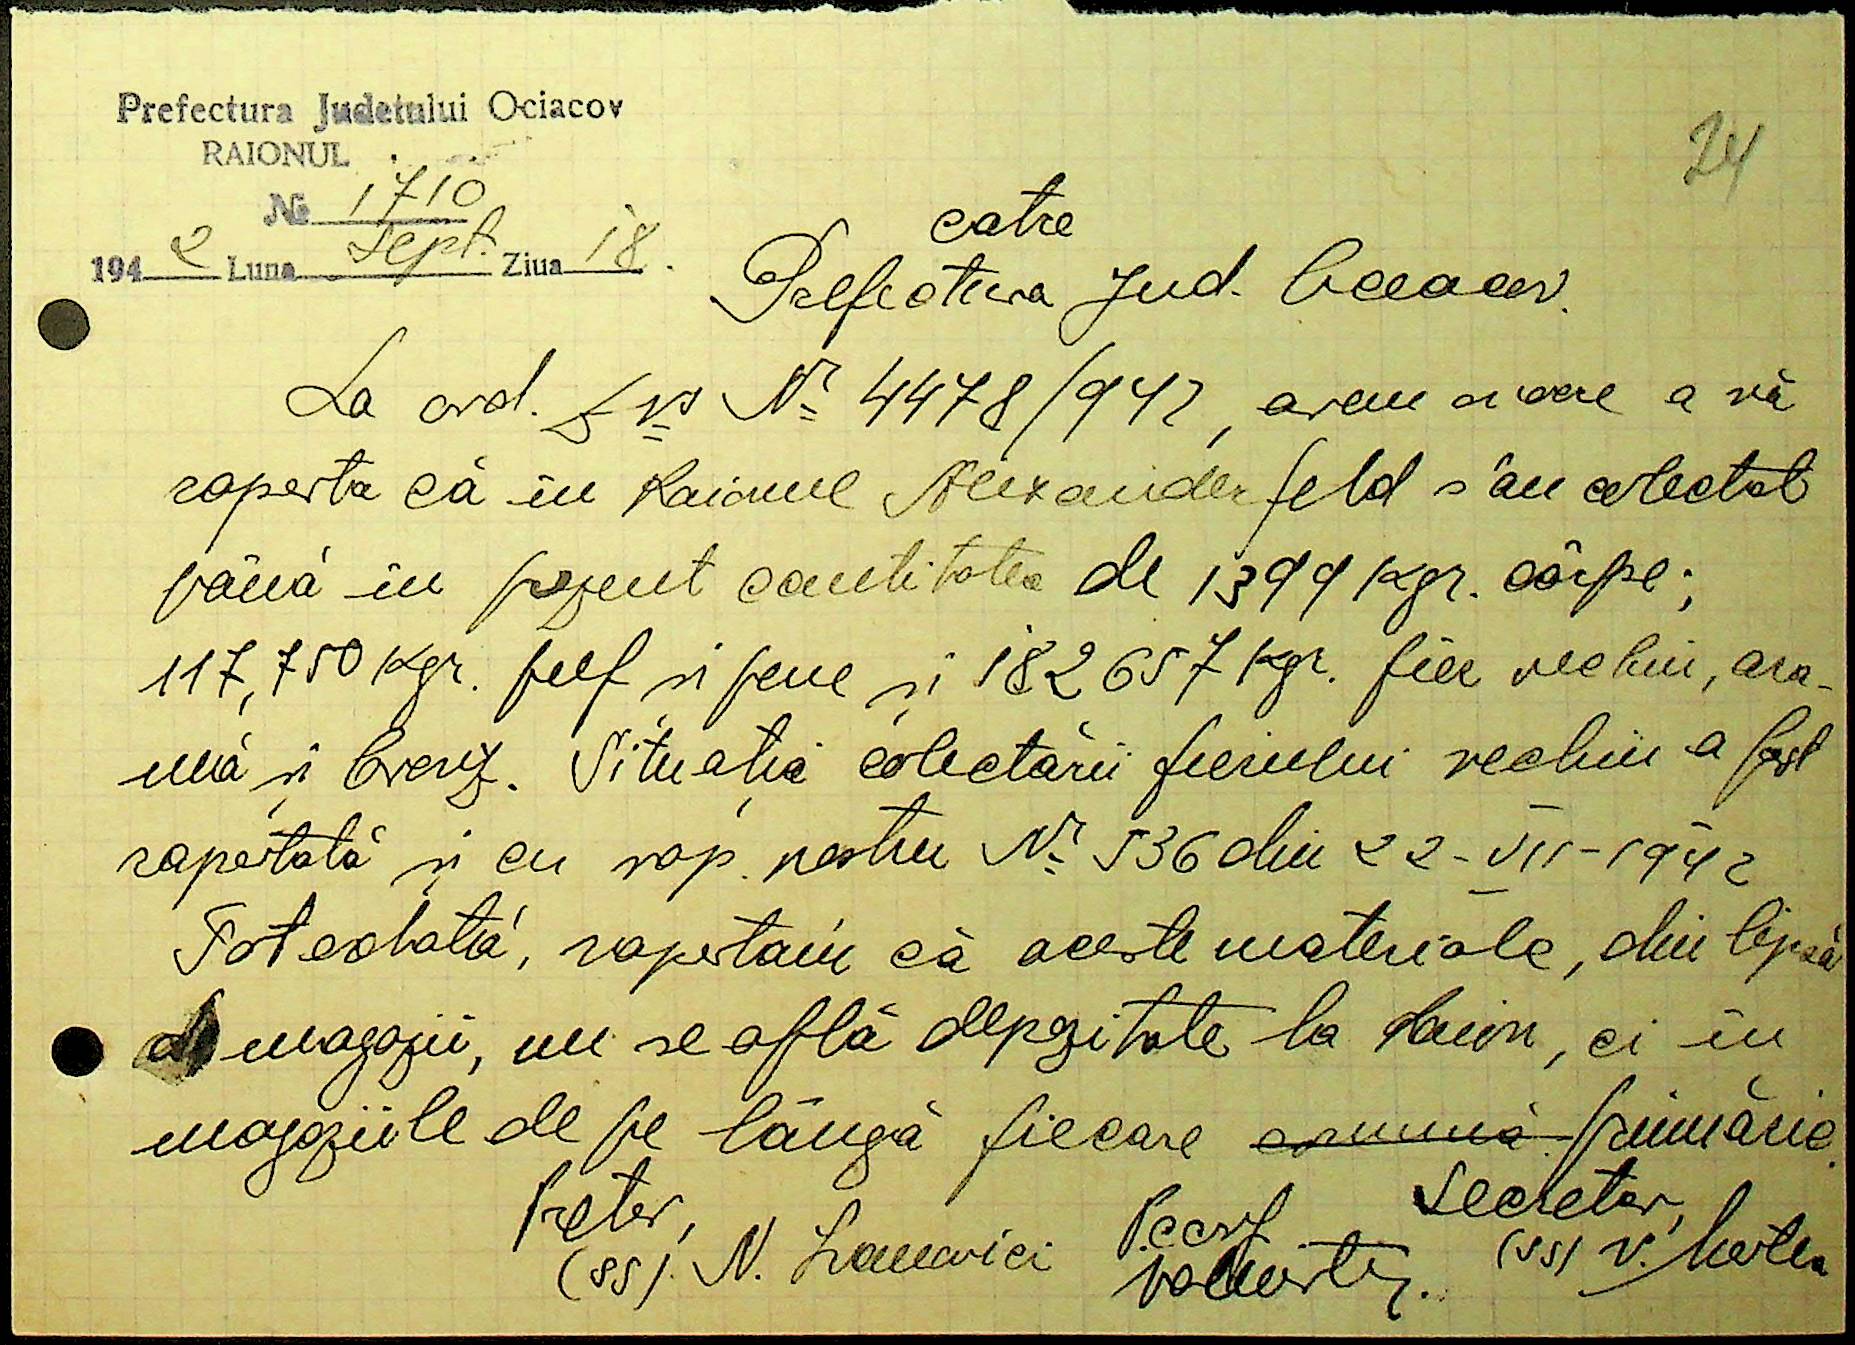 Prefectura Judetului Ociacov
RAIONUL
24
№ 1710
1942 Luna Sept. Ziua 18.
catre
Prefectura Jud. Oceacov.
La ord. Dvs Nr 4478/942, avem onoare a vă
raporta că în Raionul Alexanderfeld s'au colectat
până în prezent cantitatea de 1399 kgr. cârpe;
117,750 kgr. puf și pene și 182657 kgr. fier vechiu, ara-
mă și bronz. Situația colectării fierului vechiu a fost
raportată și cu rap. nostru Nr 536 din 22-VII-1942
Tot odată, raportăm că aceste materiale, din lipsă
de magazii, nu se află depozitate la Raion, ci în
magaziile de pe lângă fiecare comună primărie.
Pretor, Secretar,
(ss). N. Ivanovici P. conf. (ss) V.